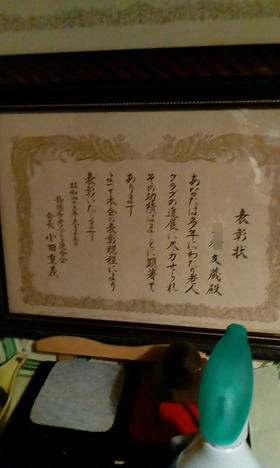 表彰状
友蔵殿
あなたは多年にわたり老人
クラブの進展に尽力せられ
その功績はまことに顕著で
あります
よって本会の表彰規程により
表彰いたします
昭和四十
会長 小田